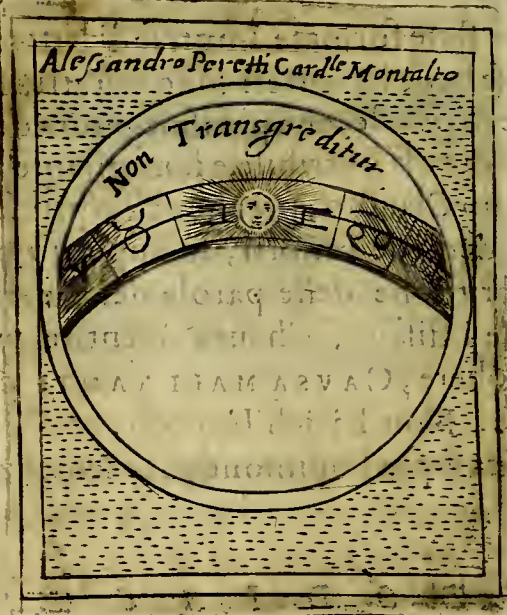 Aleſsandro Peretti Card.lle Montalto
Non Transgreditur